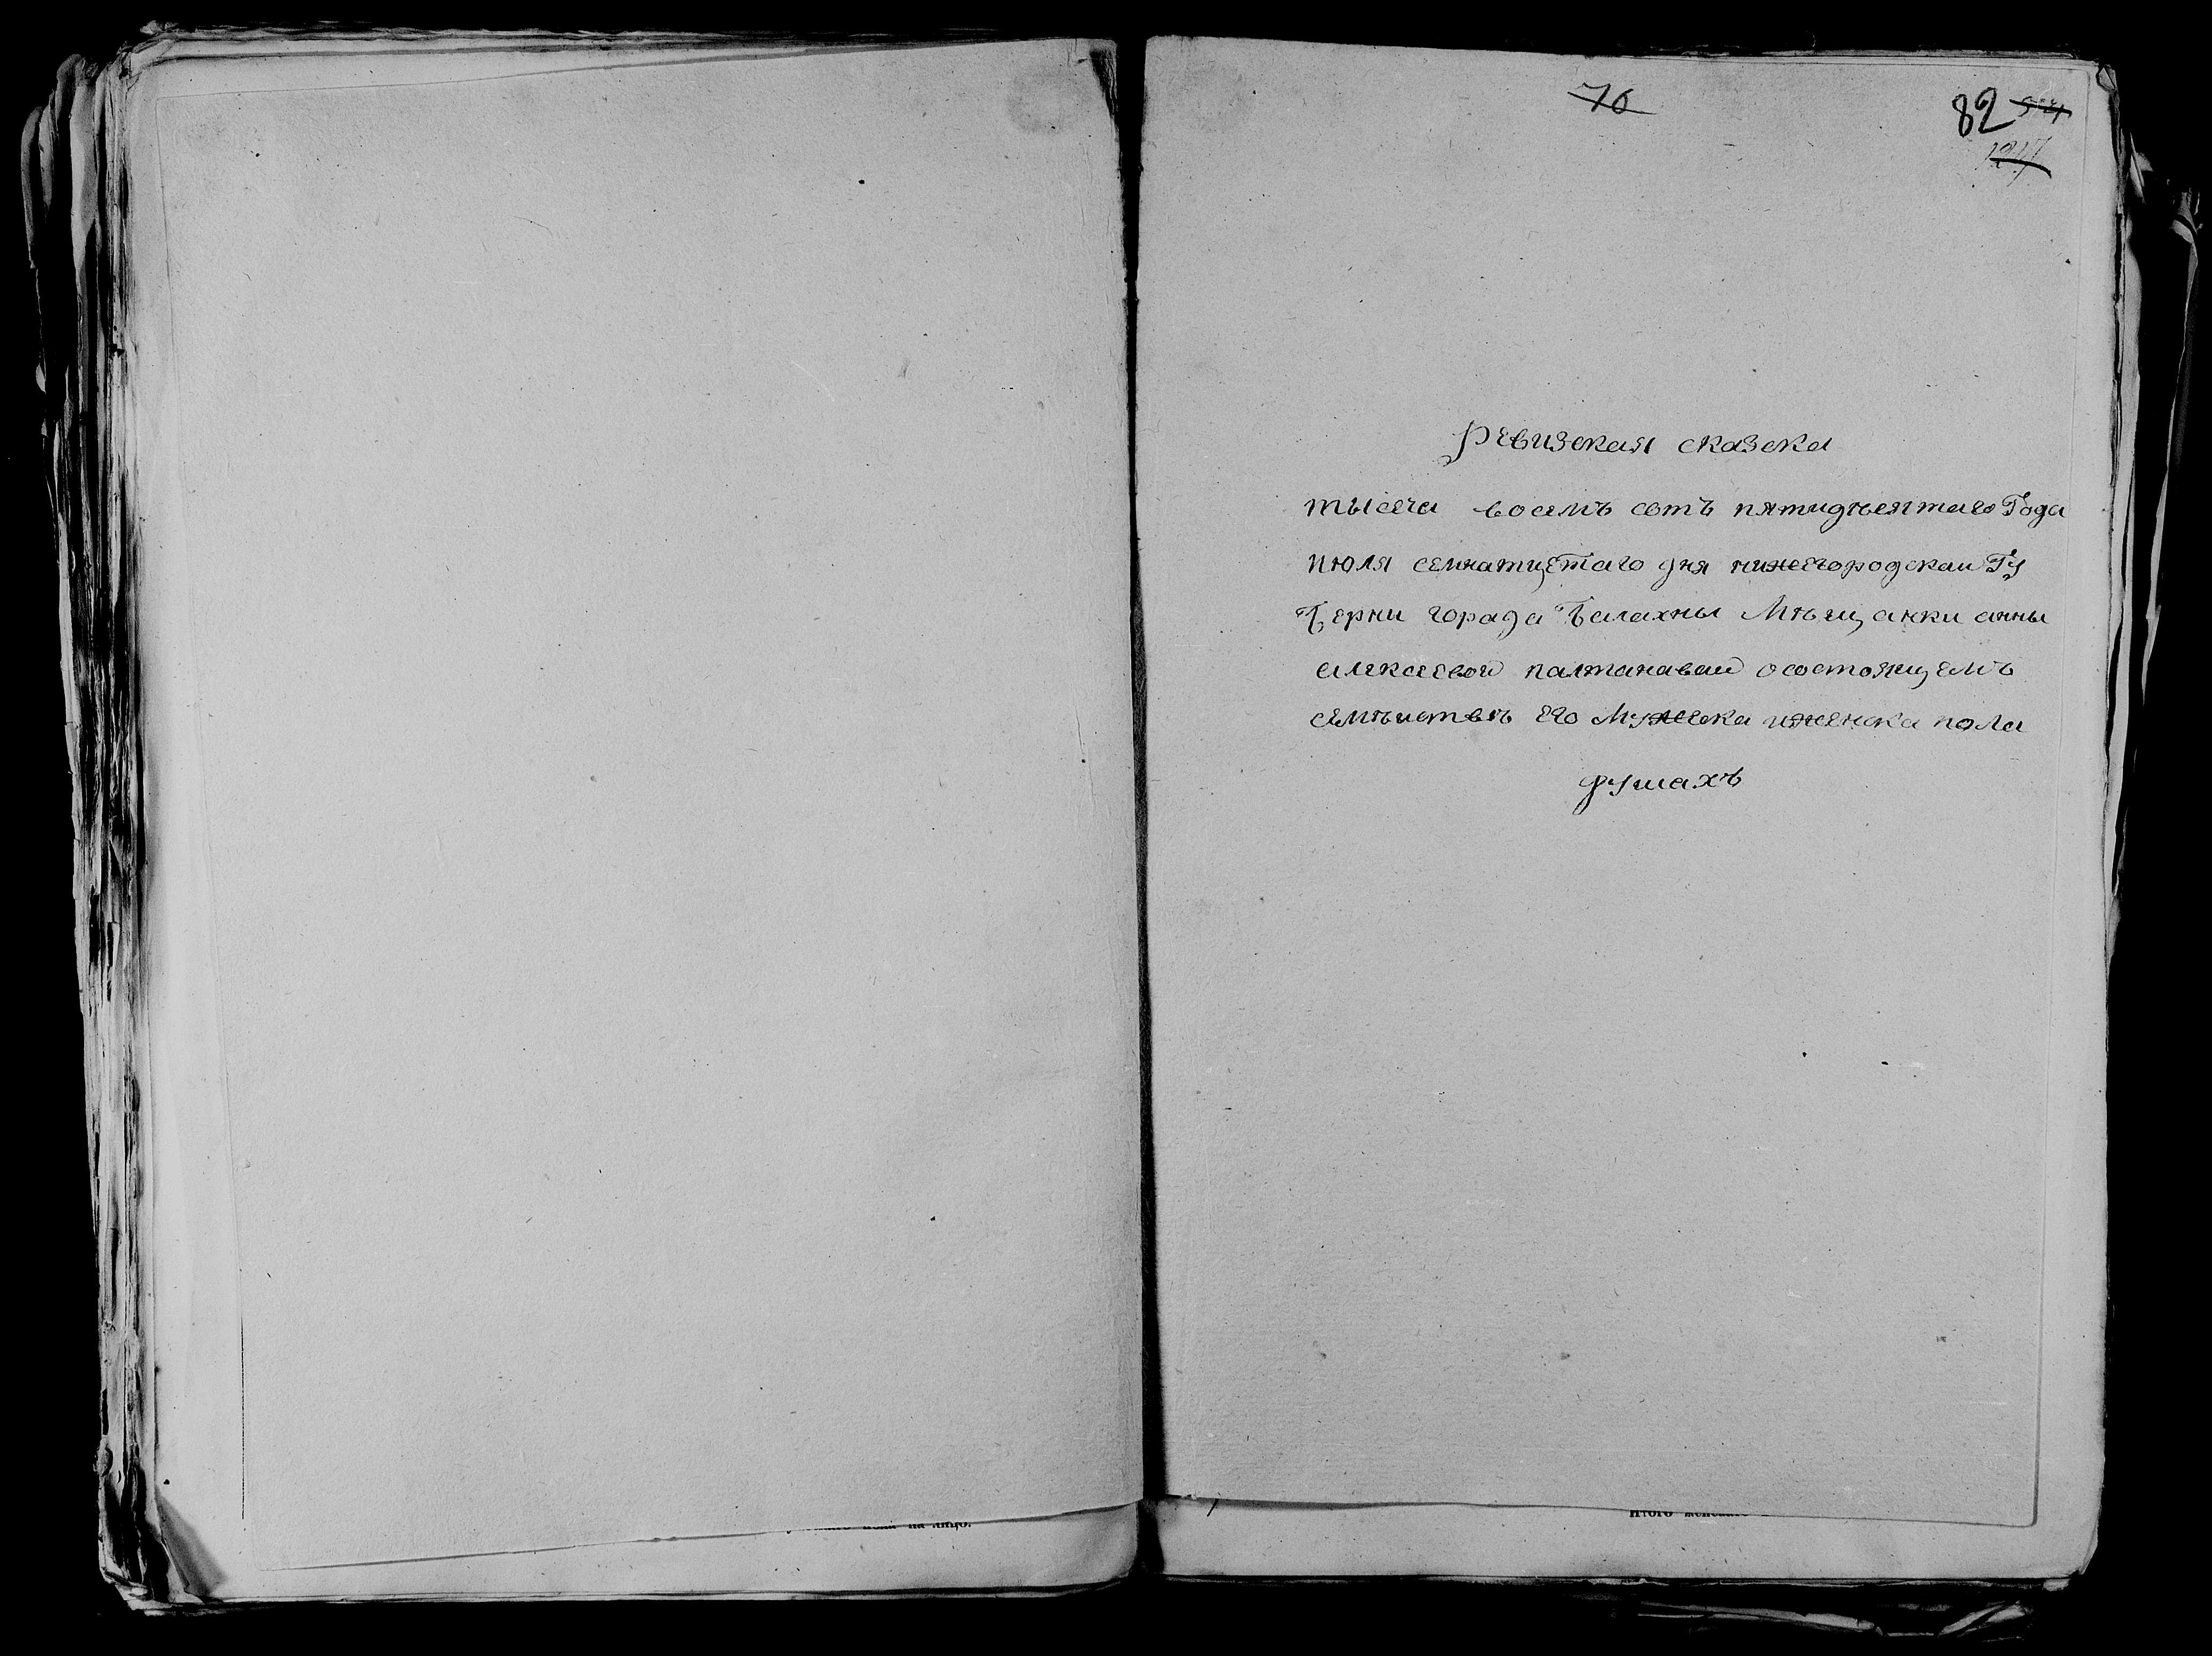 76
82
Ревизская сказска
тысеча восемъ сотъ пятидѣсятаго Года
июля семнатцетаго дня нижегородскаи Гу
Берни города Балахны Мѣщанки анны
алексеевой палтанаваи осостоящемъ
семѣиствѣ его Мужеска иженска пола
душахъ
Итого